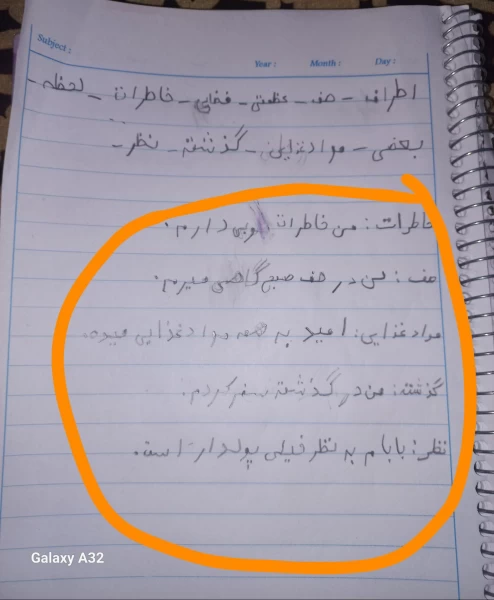 Subject :
Year : Month : Day :
اطراف - صف - عظمتی - فضایی - خاطرات - لحظه -
بعضی - موادغذایی - گذشته - نظر -
خاطرات : من خاطرات خوبی دارم .
صف : من در صف صبح گاهی میرم .
موادغذایی : امید به همه موادغذایی میده .
گذشته : من در گذشته سفر کردم .
نظر : بابام به نظر خیلی پولدار است .
Galaxy A32